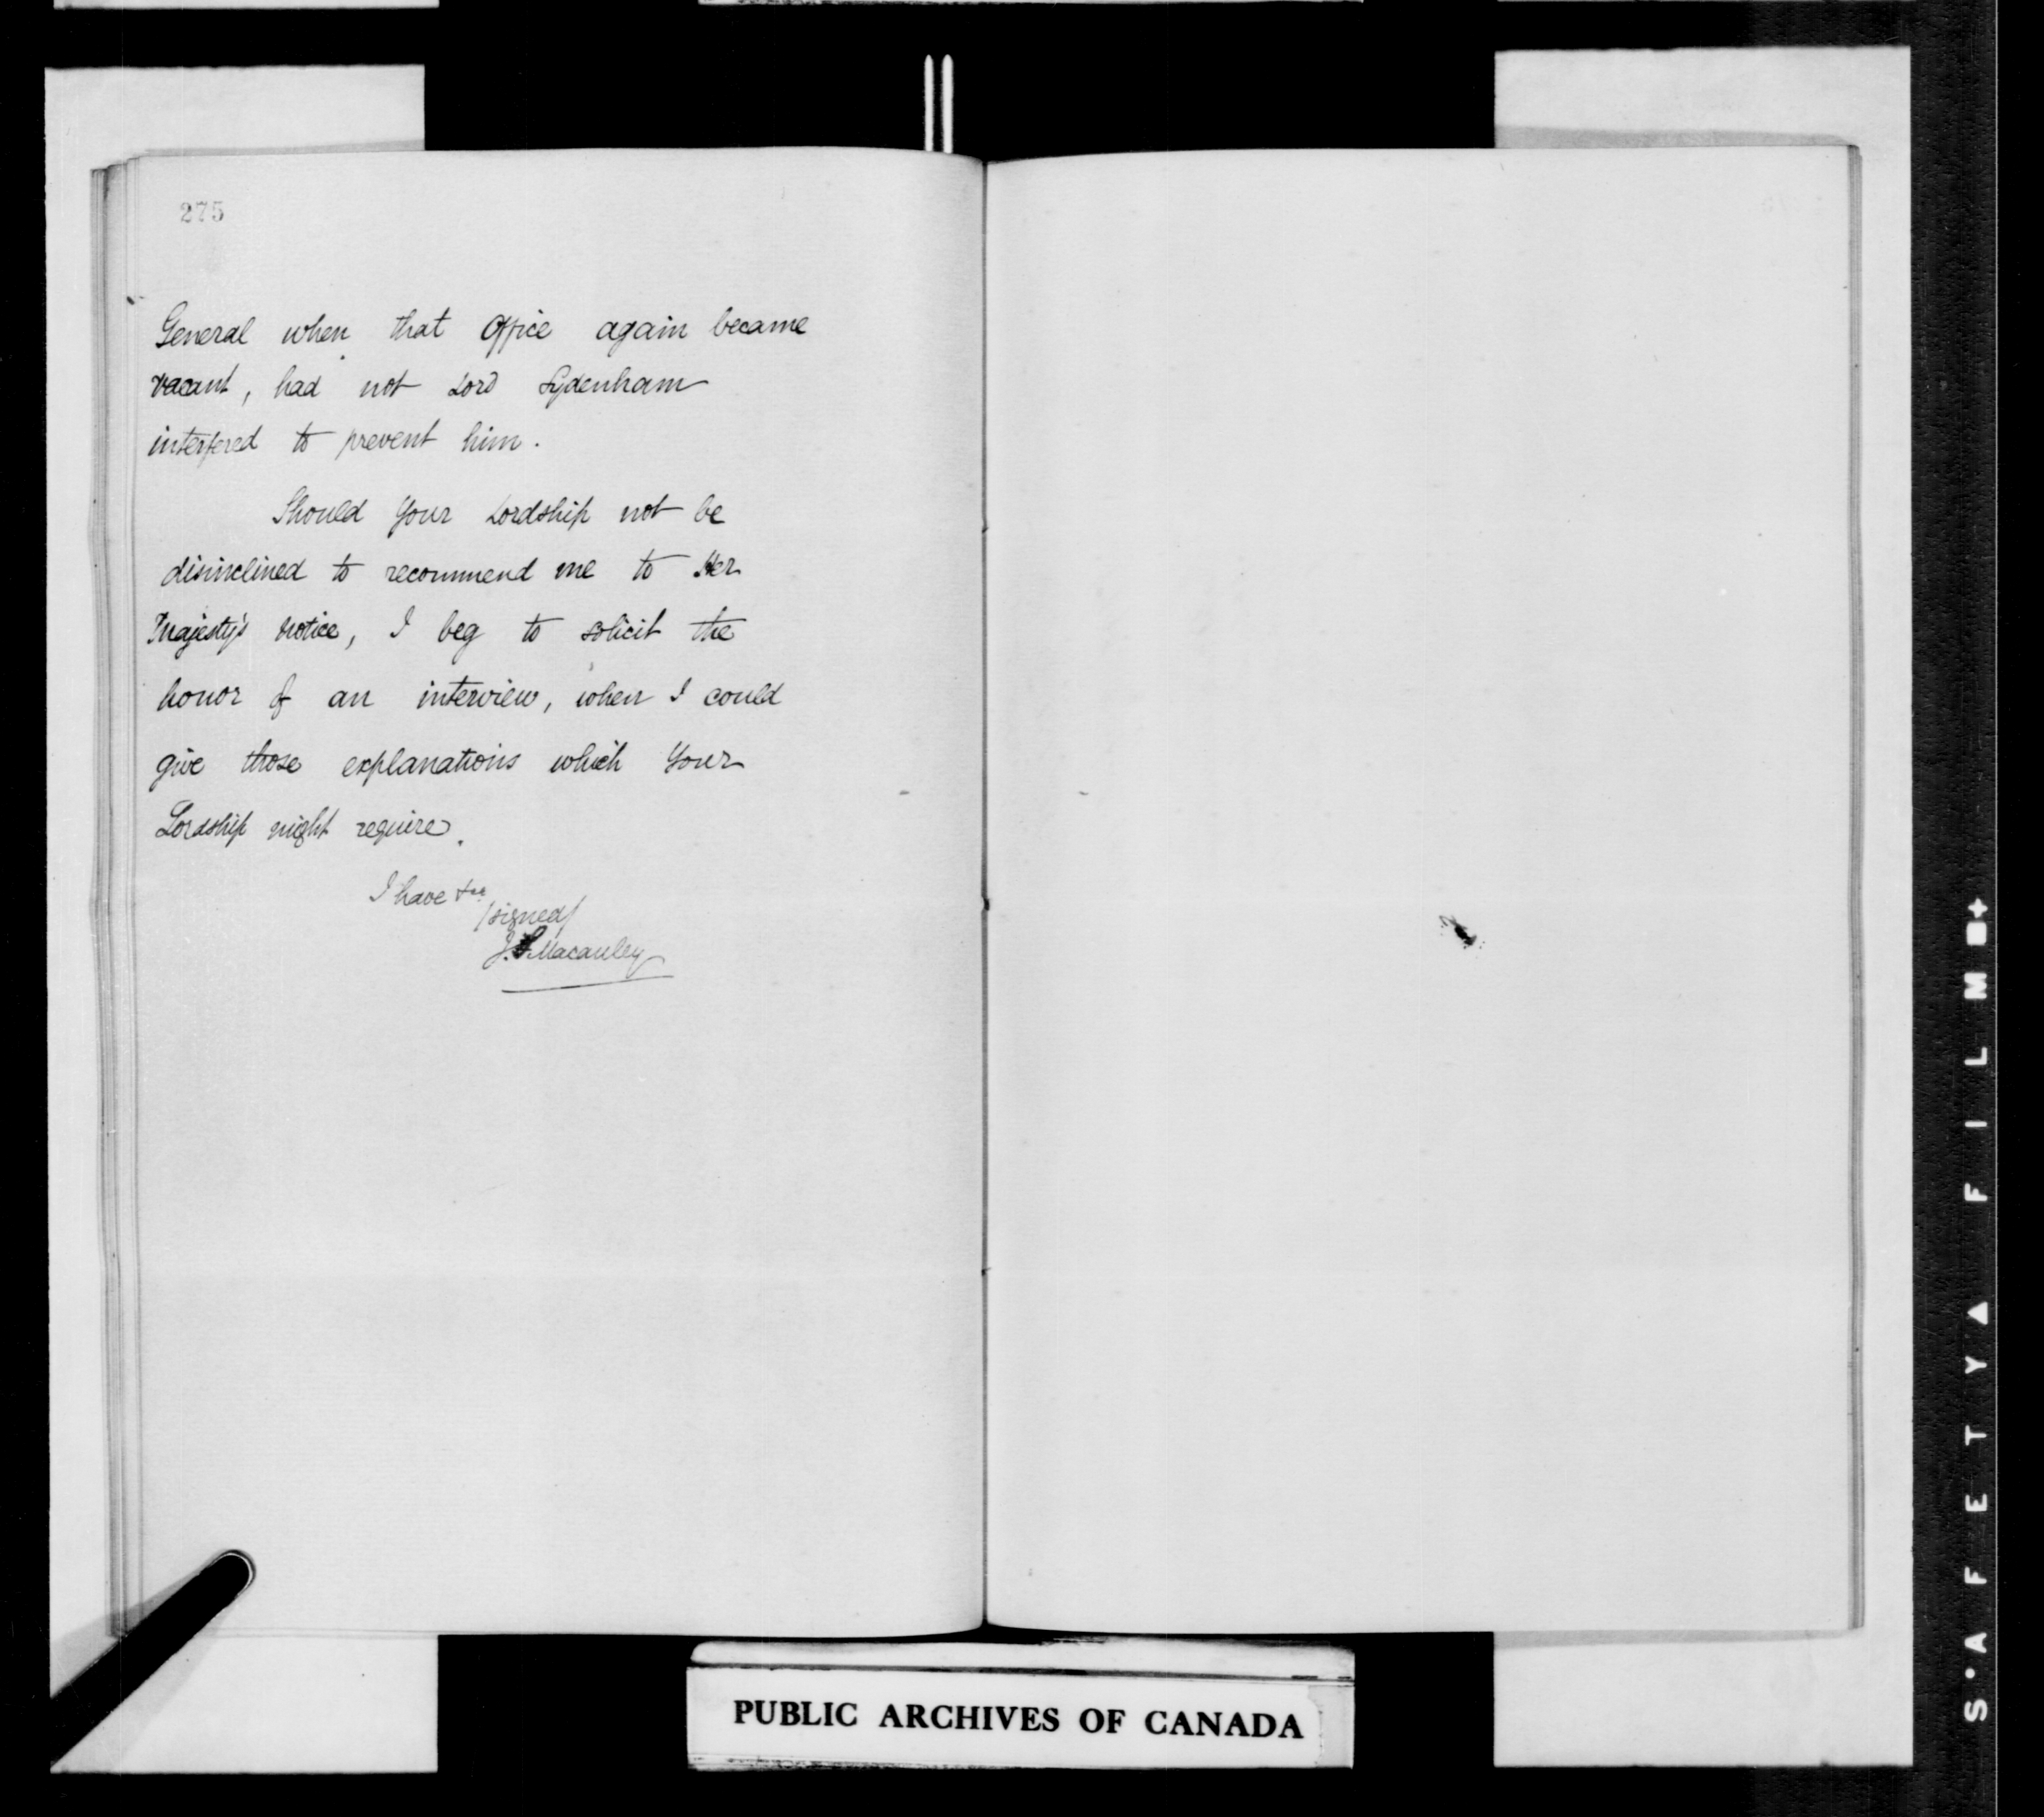 275
General when that Office again became
vacant, had not Lord Sydenham
interfered to prevent him.
Should Your Lordship not be
disinclined to recommend me to Her
Majesty's notice, I beg to solicit the
honor of an interview, when I could
give those explanations which Your
Lordship might require.
I have &ca
/signed/
J.S. Macauley
PUBLIC ARCHIVES OF CANADA
S·AFETY▲FILM■+